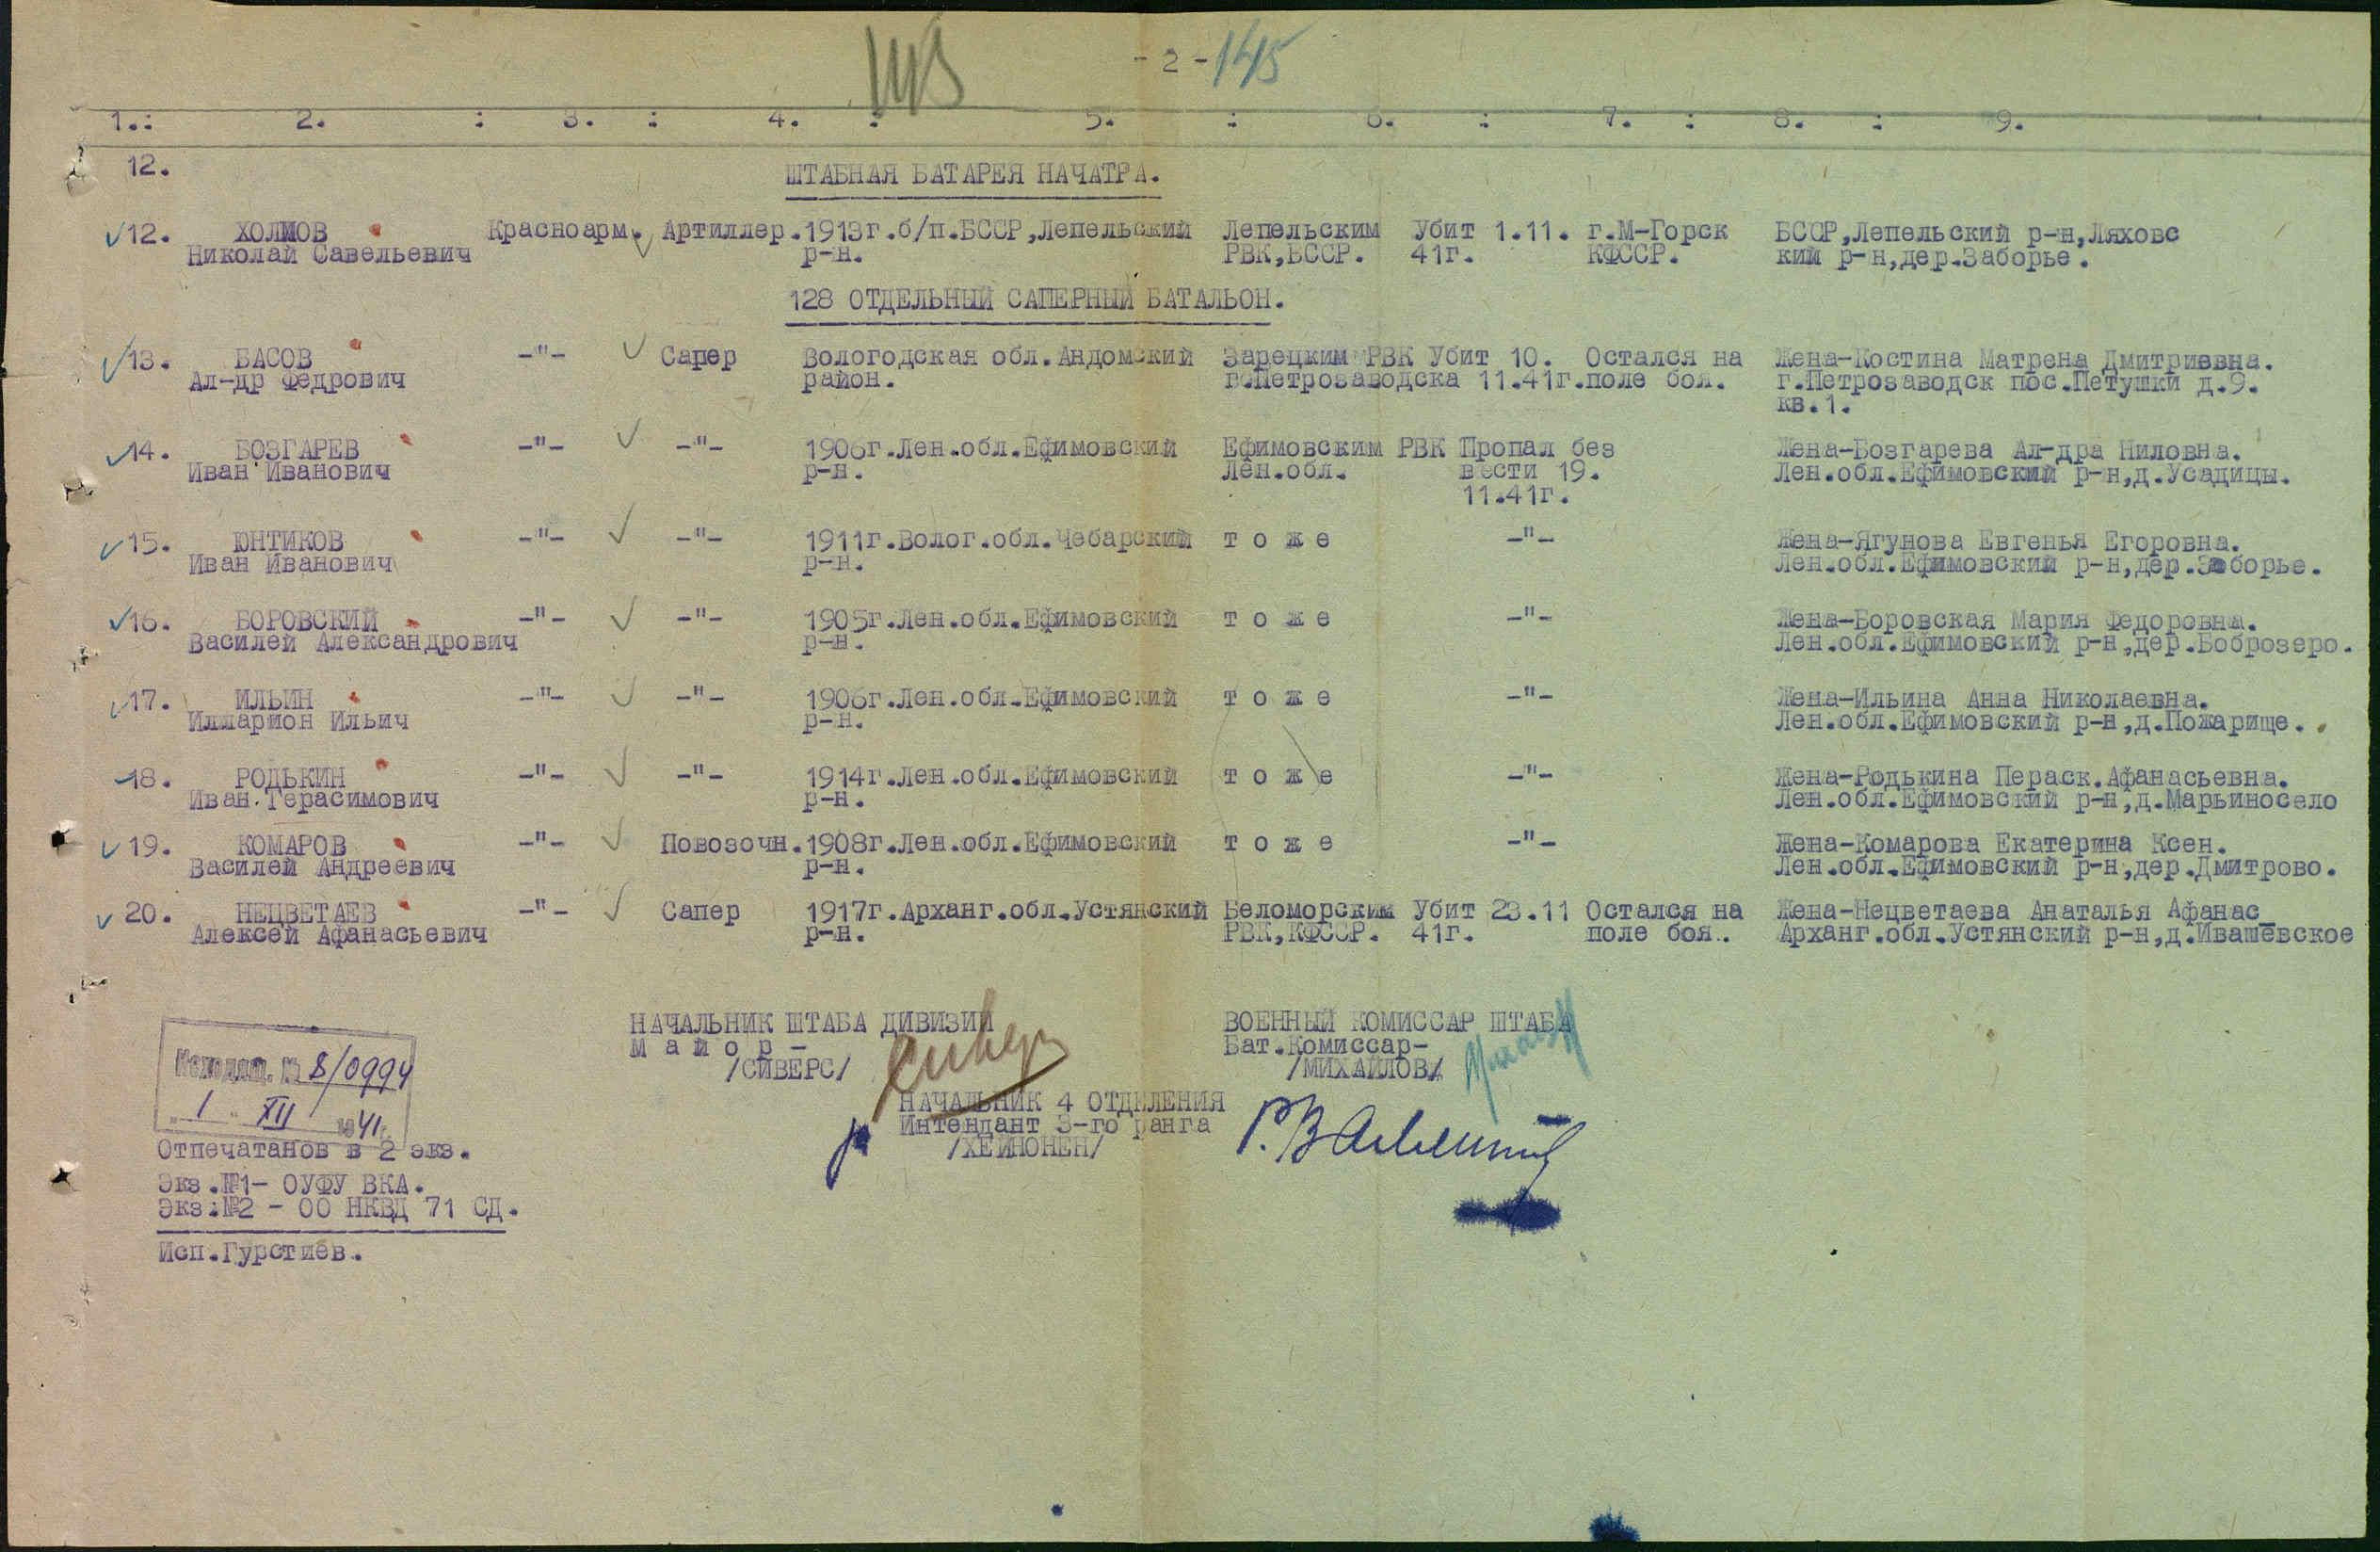 - 2 - 145
1.: 2. : 3. : 4. : 5. : 6. : 7. : 8. : 9.
12. ШТАБНАЯ БАТАРЕЯ НАЧАТРА.
12. ХОЛМОВ Красноарм. Артиллер. 1913г.б/п.БССР,Лепельский Лепельским Убит 1.11. г.М-Горск БССР,Лепельский р-н,Ляховс
Николай Савельевич р-н. РВК,БССР. 41г. КФССР. кий р-н,дер.Заборье.
128 ОТДЕЛЬНЫЙ САПЕРНЫЙ БАТАЛЬОН.
13. БАСОВ -"- Сапер Вологодская обл.Андомский Зарецким РВК Убит 10. Остался на Жена-Костина Матрена Дмитриевна.
Ал-др Федрович район. г.Петрозаводска 11.41г. поле боя. г.Петрозаводск пос.Петушки д.9.
кв.1.
14. БОЗГАРЕВ -"- -"- 1906г.Лен.обл.Ефимовский Ефимовским РВК Пропал без Жена-Бозгарева Ал-дра Ниловна.
Иван Иванович р-н. Лен.обл. вести 19. Лен.обл.Ефимовский р-н,д.Усадицы.
11.41г.
15. ЮНТИКОВ -"- -"- 1911г.Волог.обл.Чебарский т о ж е -"- Жена-Ягунова Евгенья Егоровна.
Иван Иванович р-н. Лен.обл.Ефимовский р-н,дер.Заборье.
16. БОРОВСКИЙ -"- -"- 1905г.Лен.обл.Ефимовский т о ж е -"- Жена-Боровская Мария Федоровна.
Василей Александрович р-н. Лен.обл.Ефимовский р-н,дер.Боброзеро.
17. ИЛЬИН -"- -"- 1906г.Лен.обл.Ефимовский т о ж е -"- Жена-Ильина Анна Николаевна.
Илларион Ильич р-н. Лен.обл.Ефимовский р-н,д.Пожарище.
18. РОДЬКИН -"- -"- 1914г.Лен.обл.Ефимовский т о ж е -"- Жена-Родькина Пераск.Афанасьевна.
Иван Герасимович р-н. Лен.обл.Ефимовский р-н,д.Марьиносело
19. КОМАРОВ -"- Повозочн. 1908г.Лен.обл.Ефимовский т о ж е -"- Жена-Комарова Екатерина Ксен.
Василей Андреевич р-н. Лен.обл.Ефимовский р-н,дер.Дмитрово.
20. НЕЦВЕТАЕВ -"- Сапер 1917г.Арханг.обл.Устянский Беломорским Убит 23.11 Остался на Жена-Нецветаева Анаталья Афанас_
Алексей Афанасьевич р-н. РВК,КФССР. 41г. поле боя. Арханг.обл.Устянский р-н,д.Ивашевское
НАЧАЛЬНИК ШТАБА ДИВИЗИИ ВОЕННЫЙ КОМИССАР ШТАБА
М а й о р - Бат.Комиссар-
/СИВЕРС/ /МИХАЙЛОВ/
НАЧАЛЬНИК 4 ОТДЕЛЕНИЯ
Интендант 3-го ранга
/ХЕЙНОНЕН/
Исходящ. № 8/0994
"1" XII 1941г.
Отпечатанов в 2 экз.
Экз.№1- ОУФУ ВКА.
Экз:№2 - ОО НКВД 71 СД.
Исп.Гурстиев.